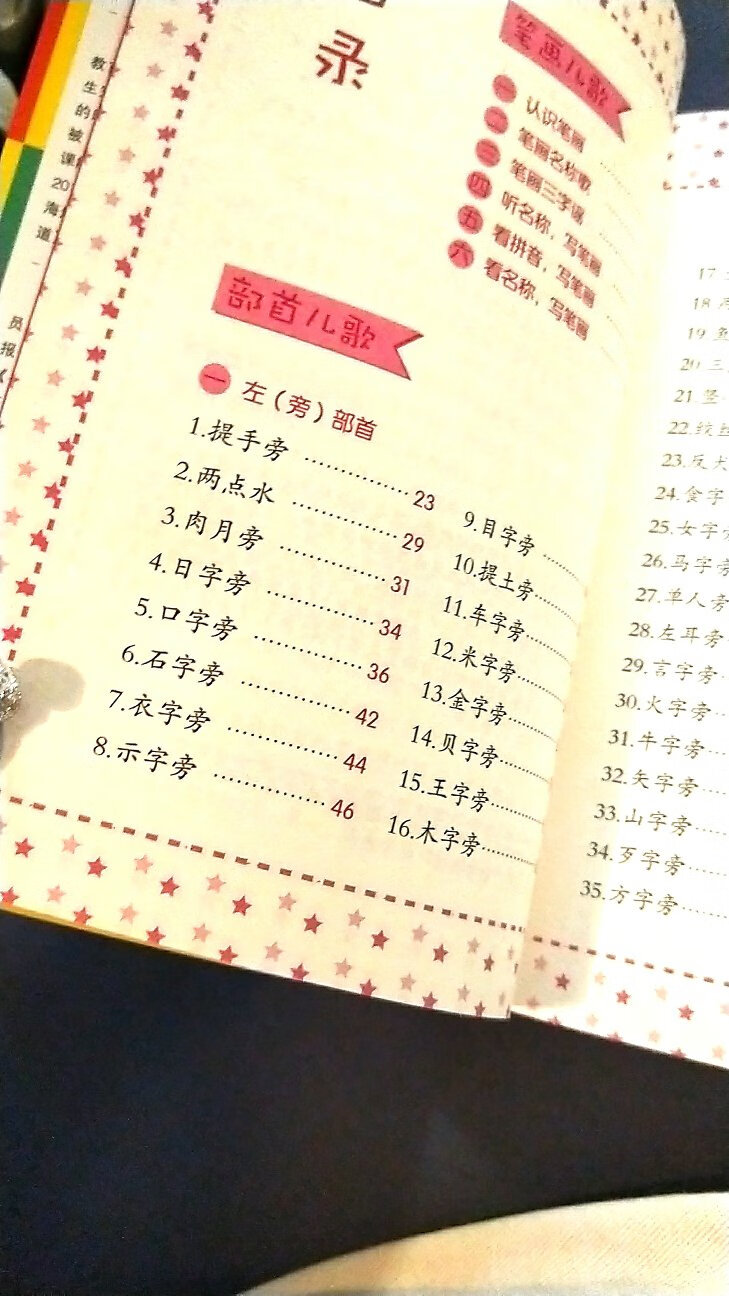 录
笔画儿歌
一 认识笔画
二 笔画名称歌
三 笔画三字谣
四 听名称，写笔画
五 看拼音，写笔画
六 看名称，写笔画
部首儿歌
一 左（旁）部首
1.提手旁 ………… 23
2.两点水 ………… 29
3.肉月旁 ………… 31
4.日字旁 ………… 34
5.口字旁 ………… 36
6.石字旁 ………… 42
7.衣字旁 ………… 44
8.示字旁 ………… 46
9.目字旁
10.提土旁
11.车字旁
12.米字旁
13.金字旁
14.贝字旁
15.王字旁
16.木字旁
17
18
19
20.三
21.竖
22.绞丝
23.反犬
24.食字
25.女字旁
26.马字旁
27.单人旁
28.左耳旁
29.言字旁
30.火字旁
31.牛字旁
32.矢字旁
33.山字旁
34.歹字旁
35.方字旁
教生的被课20海道
员报